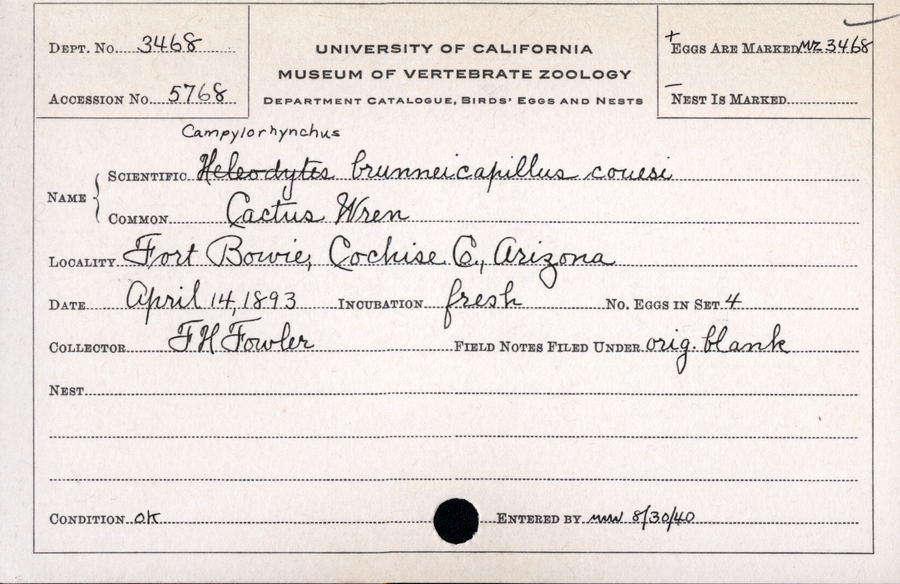 Dept. No. 3468
Accession No. 5768
UNIVERSITY OF CALIFORNIA
MUSEUM OF VERTEBRATE ZOOLOGY
Department Catalogue, Birds' Eggs and Nests
+ Eggs Are Marked MVZ 3468
- Nest Is Marked
Campylorhynchus
Name Scientific Heleodytes brunneicapillus couesi
Common Cactus Wren
Locality Fort Bowie, Cochise Co., Arizona
Date April 14, 1893 Incubation fresh No. Eggs in Set 4
Collector F H Fowler Field Notes Filed Under orig. blank
Nest
Condition OK Entered by mmw 8/30/40